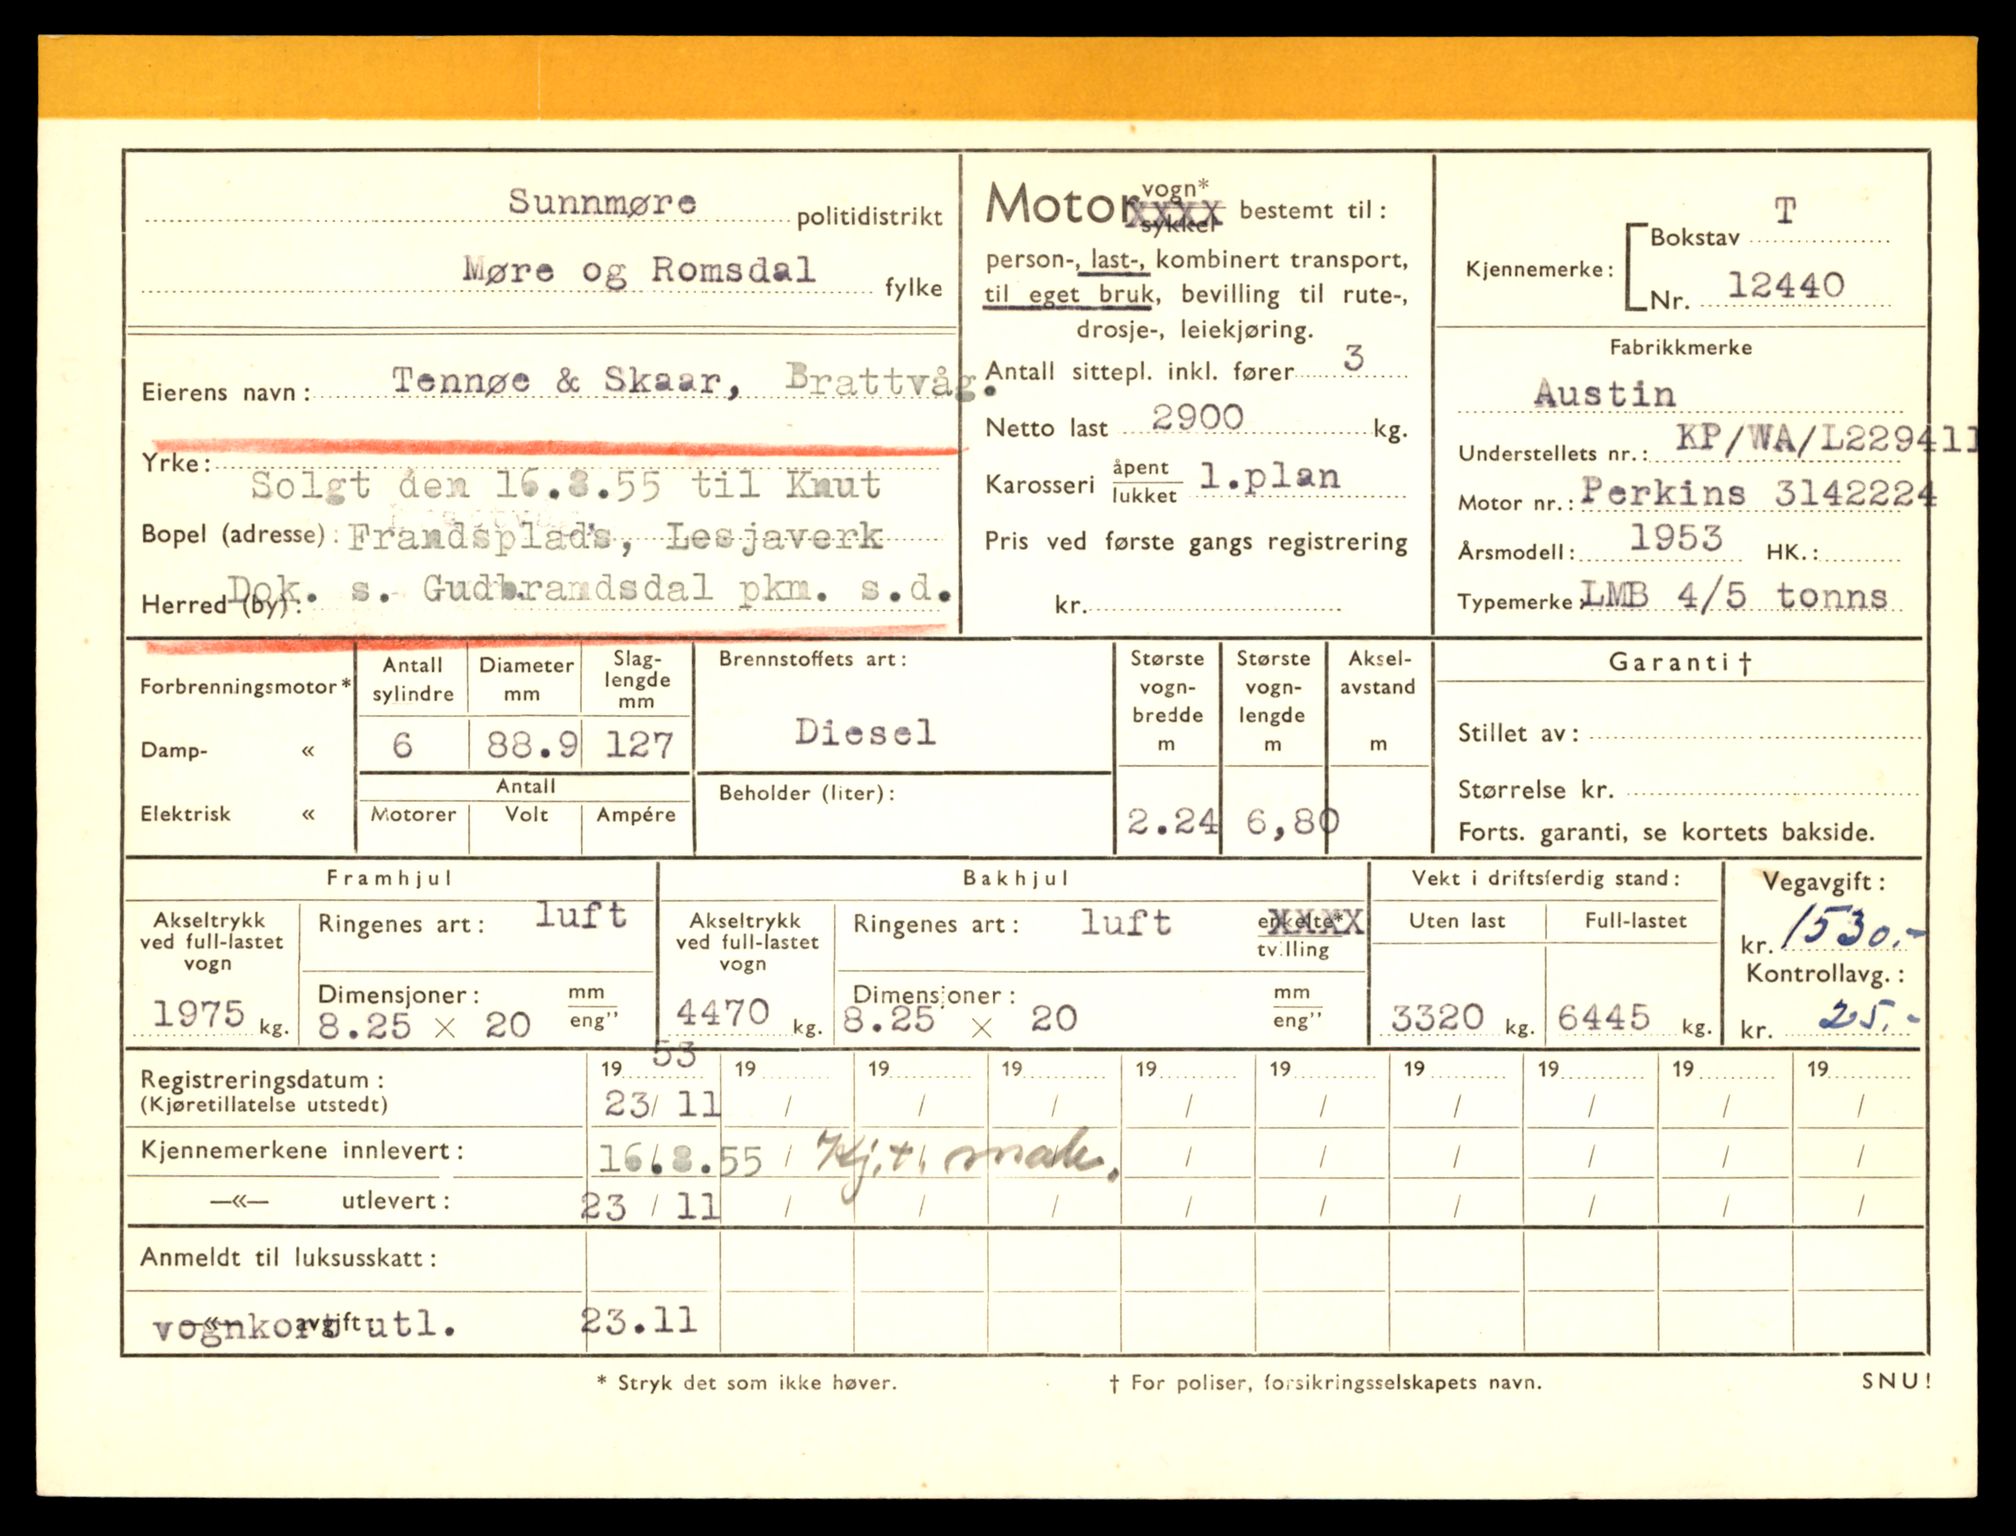 Sunnmøre politidistrikt
Møre og Romsdal fylke
Eierens navn: Tennøe & Skaar, Brattvåg.
Yrke:
Solgt den 16.8.55 til Knut
Bopel (adresse): Frandsplads, Lesjaverk
Dok. s. Gudbrandsdal pkm. s.d.
Herred (by):
Motor vogn* sykkel bestemt til:
person-, last-, kombinert transport,
til eget bruk, bevilling til rute-,
drosje-, leiekjøring.
Antall sittepl. inkl. fører 3
Netto last 2900 kg.
Karosseri åpent lukket 1.plan
Pris ved første gangs registrering
kr.
Kjennemerke: Bokstav T
Nr. 12440
Fabrikkmerke
Austin
Understellets nr.: KP/WA/L229411
Motor nr.: Perkins 3142224
Årsmodell: 1953 HK.:
Typemerke: LMB 4/5 tonns
Forbrenningsmotor*
Damp- «
Elektrisk «
Antall sylindre Diameter mm Slag-lengde mm
6 88.9 127
Antall
Motorer Volt Ampére
Brennstoffets art:
Diesel
Beholder (liter):
Største vogn-bredde m Største vogn-lengde m Aksel-avstand m
2.24 6,80
Garanti†
Stillet av:
Størrelse kr.
Forts. garanti, se kortets bakside.
Framhjul
Akseltrykk ved full-lastet vogn
1975 kg.
Ringenes art: luft
Dimensjoner: mm
8.25 × 20 eng"
Bakhjul
Akseltrykk ved full-lastet vogn
4470 kg.
Ringenes art: luft enkelte* tvilling
Dimensjoner: mm
8.25 × 20 eng"
Vekt i driftsferdig stand:
Uten last Full-lastet
3320 kg. 6445 kg.
Vegavgift:
kr. 1530.-
Kontrollavg.:
kr. 25.-
19 53 19 19 19 19 19 19 19 19 19
Registreringsdatum:
(Kjøretillatelse utstedt) 23/ 11 / / / / / / / / /
Kjennemerkene innlevert: 16.8.55 / Kj.t. mak. / / / / / /
—«— utlevert: 23 / 11 / / / / / / / / /
Anmeldt til luksusskatt:
—«— avgift
vognkort utl. 23.11
* Stryk det som ikke høver.
† For poliser, forsikringsselskapets navn.
SNU!